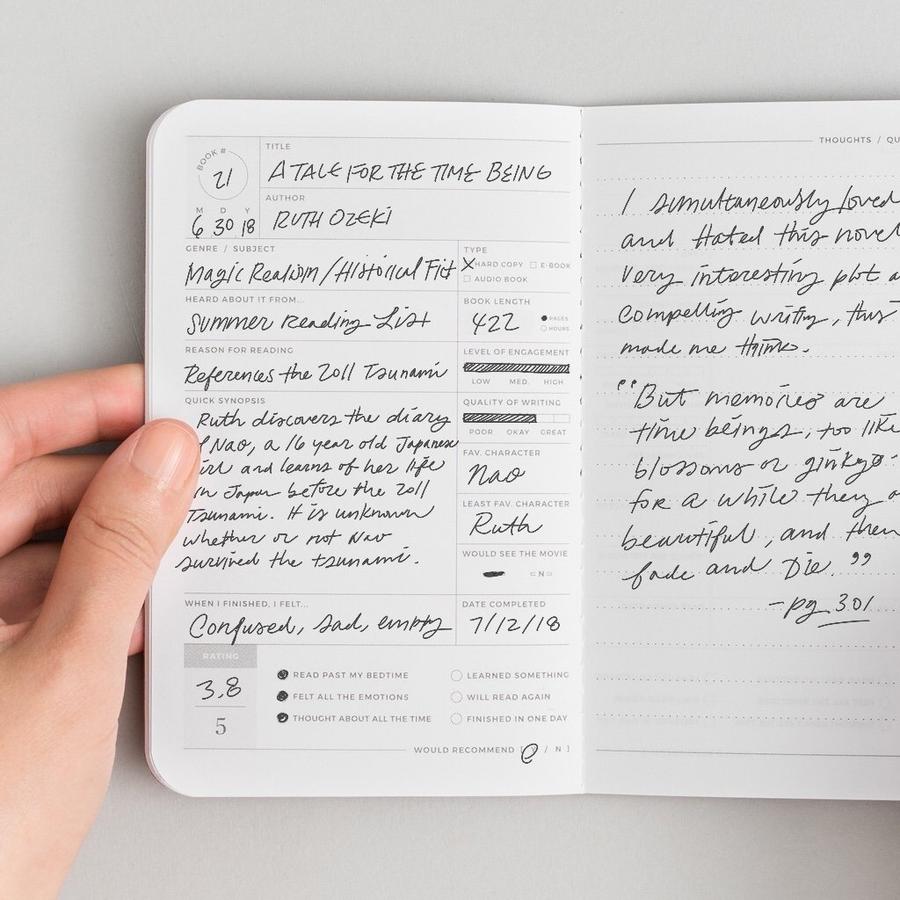 BOOK #
21
M D Y
6 30 18
TITLE
A TALE FOR THE TIME BEING
AUTHOR
RUTH OZEKI
GENRE / SUBJECT
Magic Realism / Historical Fict
TYPE
X HARD COPY E-BOOK
AUDIO BOOK
HEARD ABOUT IT FROM...
Summer Reading List
BOOK LENGTH
422
PAGES
HOURS
REASON FOR READING
References the 2011 Tsunami
LEVEL OF ENGAGEMENT
LOW MED. HIGH
QUICK SYNOPSIS
Ruth discovers the diary
Nao, a 16 year old Japanese
and learns of her life
in Japan before the 2011
Tsunami. It is unknown
whether or not Nao
survived the tsunami.
QUALITY OF WRITING
POOR OKAY GREAT
FAV. CHARACTER
Nao
LEAST FAV. CHARACTER
Ruth
WOULD SEE THE MOVIE
N
WHEN I FINISHED, I FELT...
Confused, sad, empty
DATE COMPLETED
7/12/18
RATING
3.8
5
READ PAST MY BEDTIME
FELT ALL THE EMOTIONS
THOUGHT ABOUT ALL THE TIME
LEARNED SOMETHING
WILL READ AGAIN
FINISHED IN ONE DAY
WOULD RECOMMEND [ / N ]
THOUGHTS / QU
I simultaneously loved
and Hated this novel
very interesting plot a
compelling writing, this
made me think.
"But memories are
time beings, too, like
blossoms or ginkgo
for a while they a
beautiful, and then
fade and Die."
-pg 301